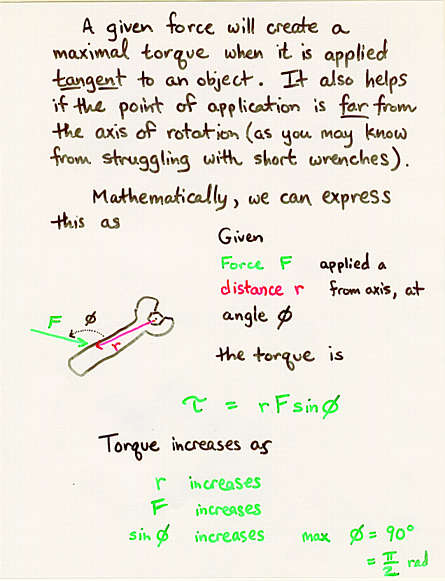 A given force will create a
maximal torque when it is applied
tangent to an object. It also helps
if the point of application is far from
the axis of rotation (as you may know
from struggling with short wrenches).
Mathematically, we can express
this as
Given
Force F applied a
distance r from axis, at
angle ϕ
F ϕ
r
the torque is
τ = r F sin ϕ
Torque increases as
r increases
F increases
sin ϕ increases max ϕ = 90°
= π/2 rad